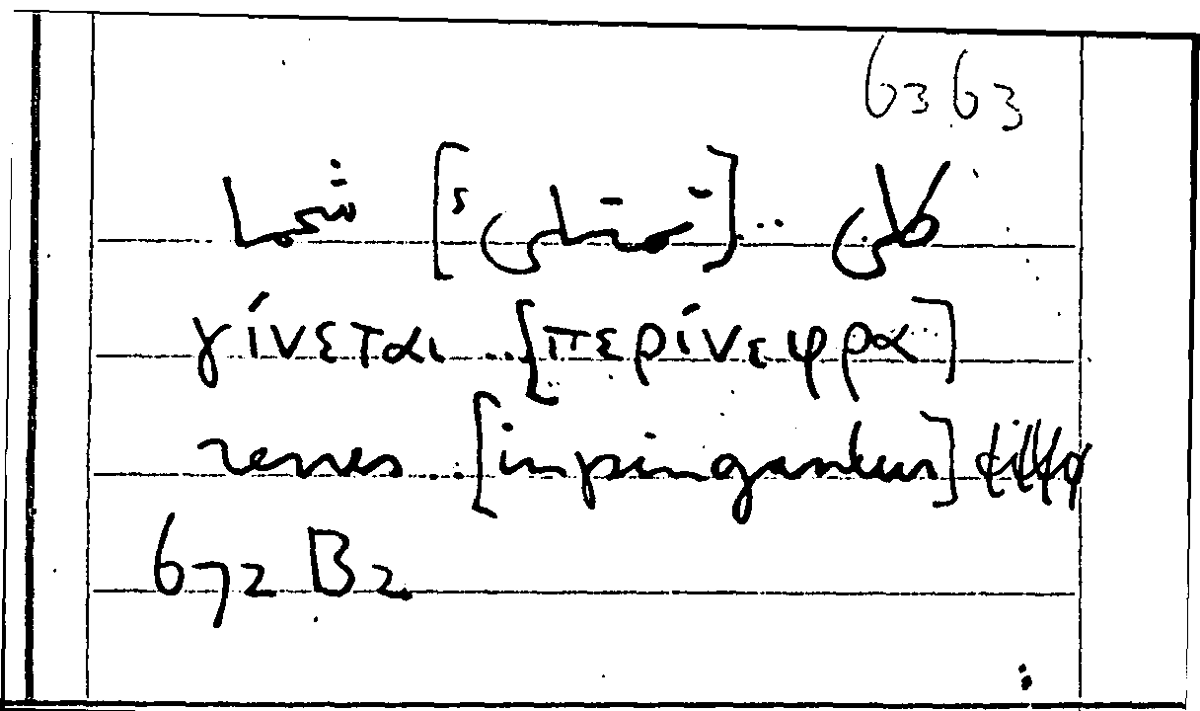 6363
كلى ... [تمتلئ] شحما
γίνεται ... [περίνεφρα]
renes ... [impinguantur]
672 B2